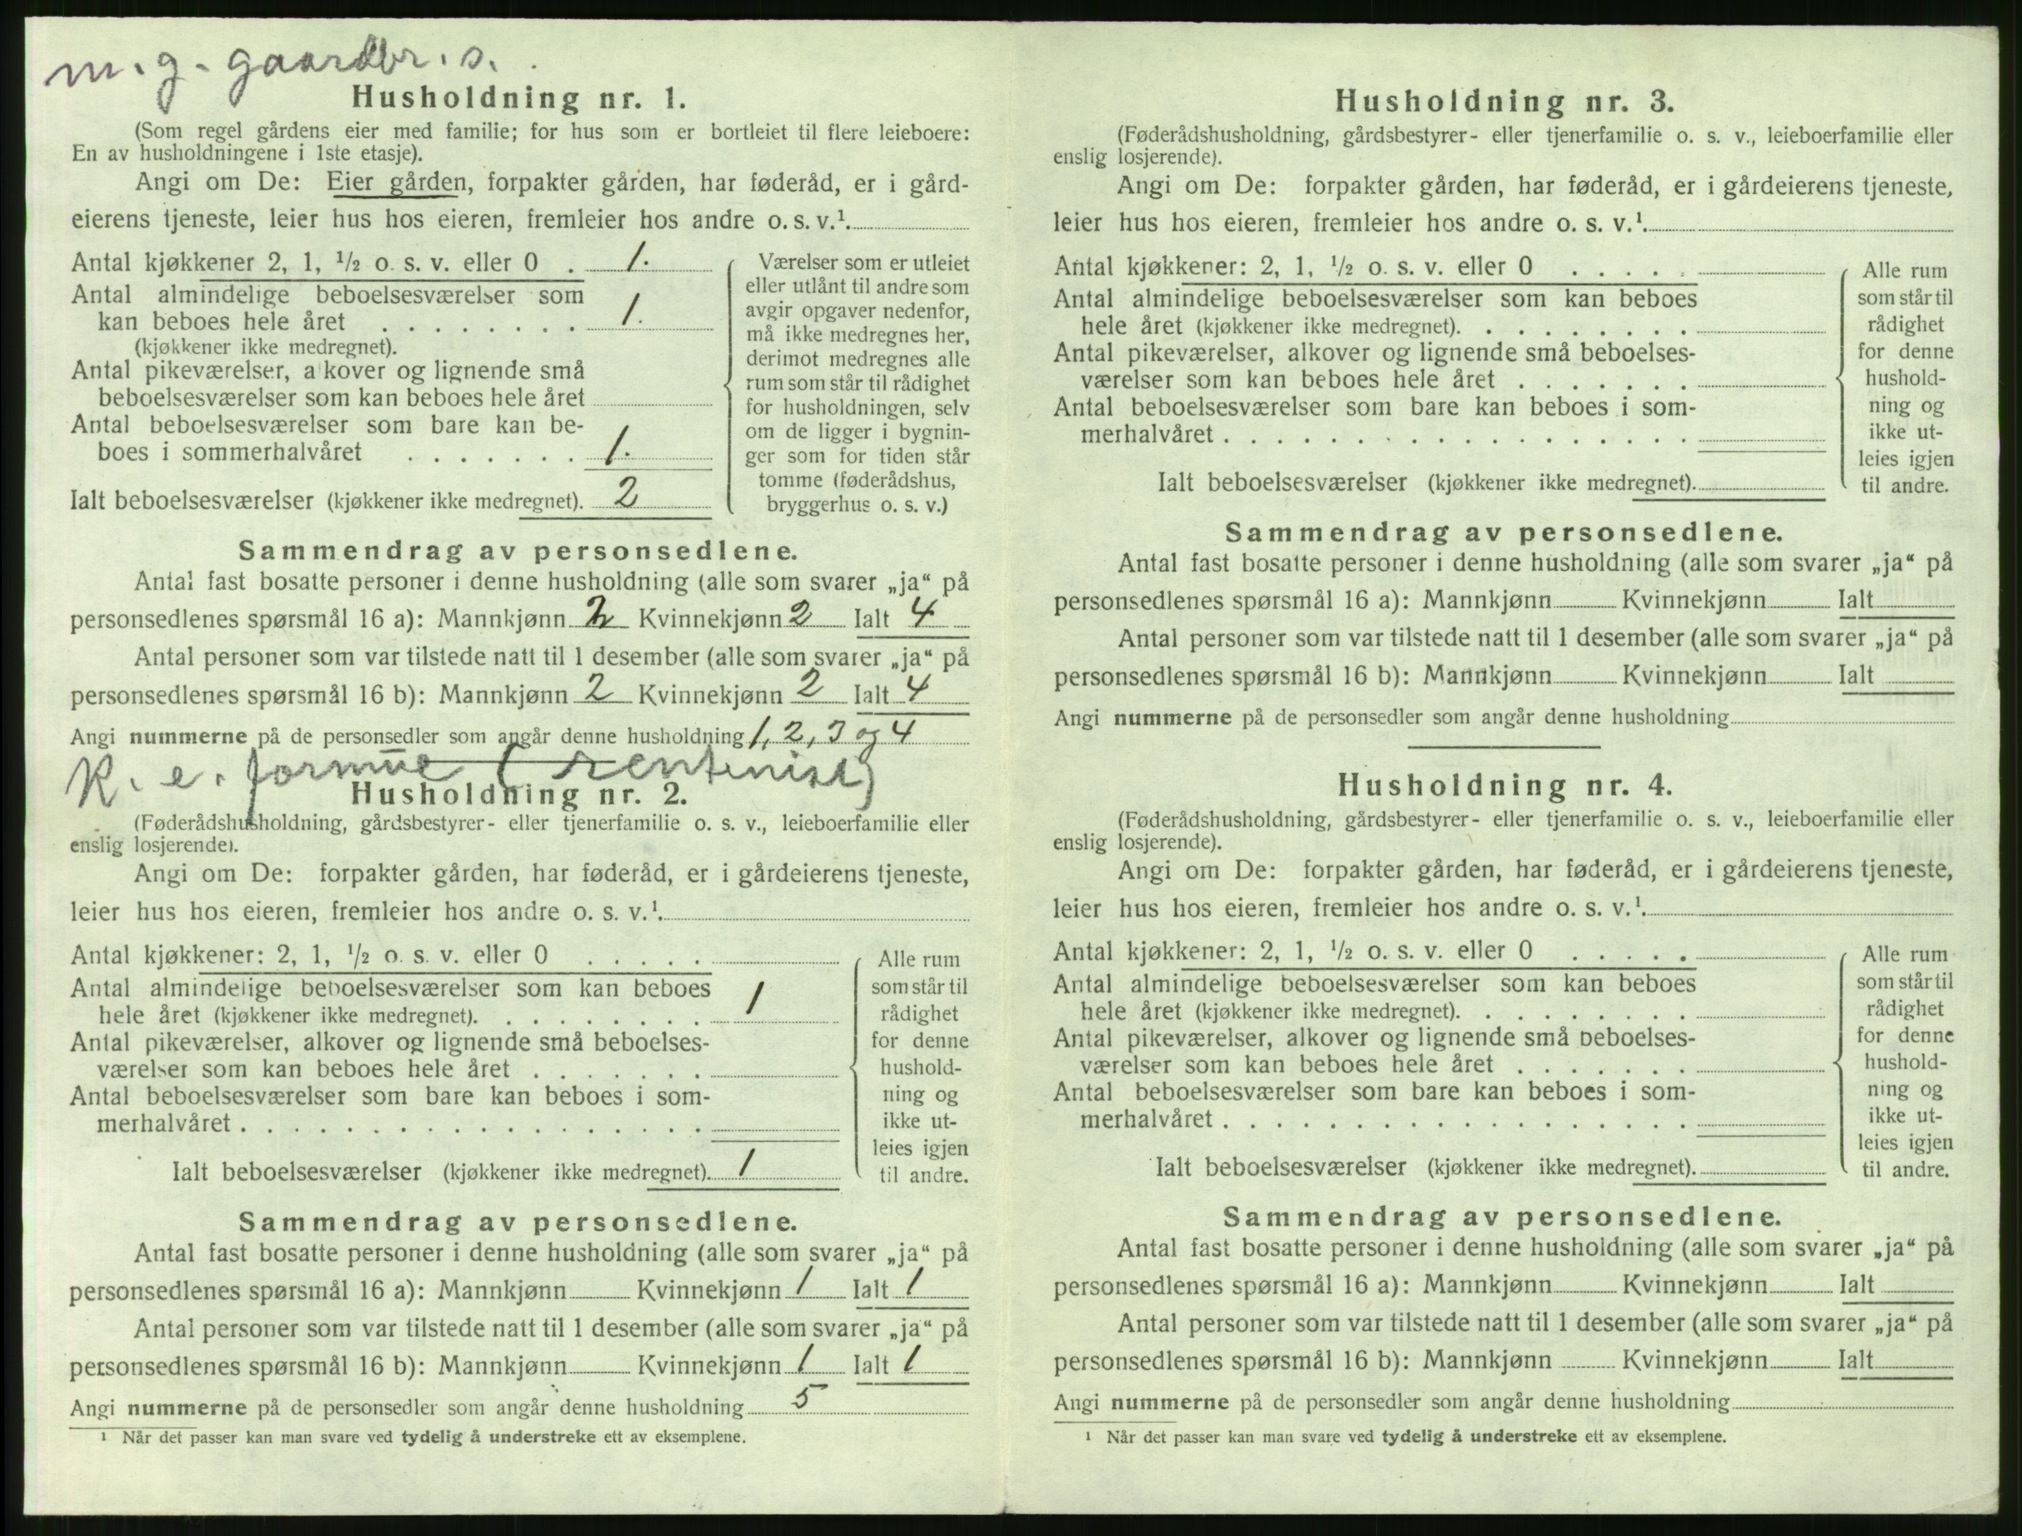 m. g. gaardbr. s.
Husholdning nr. 1.
(Som regel gårdens eier med familie; for hus som er bortleiet til flere leieboere:
En av husholdningene i 1ste etasje).
Angi om De: Eier gården, forpakter gården, har føderåd, er i gård-
eierens tjeneste, leier hus hos eieren, fremleier hos andre o. s. v.¹.
Antal kjøkkener 2, 1, ½ o. s. v. eller 0 . 1.
Antal almindelige beboelsesværelser som
kan beboes hele året . . . . . . . . 1.
(kjøkkener ikke medregnet).
Antal pikeværelser, alkover og lignende små
beboelsesværelser som kan beboes hele året
Antal beboelsesværelser som bare kan be-
boes i sommerhalvåret . . . . . . . 1.
Ialt beboelsesværelser (kjøkkener ikke medregnet). 2
Værelser som er utleiet
eller utlånt til andre som
avgir opgaver nedenfor,
må ikke medregnes her,
derimot medregnes alle
rum som står til rådighet
for husholdningen, selv
om de ligger i bygnin-
ger som for tiden står
tomme (føderådshus,
bryggerhus o. s. v.)
Sammendrag av personsedlene.
Antal fast bosatte personer i denne husholdning (alle som svarer „ja“ på
personsedlenes spørsmål 16 a): Mannkjønn 2 Kvinnekjønn 2 Ialt 4
Antal personer som var tilstede natt til 1 desember (alle som svarer „ja“ på
personsedlenes spørsmål 16 b): Mannkjønn 2 Kvinnekjønn 2 Ialt 4
Angi nummerne på de personsedler som angår denne husholdning 1, 2, 3 og 4
K. e. formue (rentenist)
Husholdning nr. 2.
(Føderådshusholdning, gårdsbestyrer- eller tjenerfamilie o. s. v., leieboerfamilie eller
enslig losjerende).
Angi om De: forpakter gården, har føderåd, er i gårdeierens tjeneste,
leier hus hos eieren, fremleier hos andre o. s. v.¹.
Antal kjøkkener: 2, 1, ½ o. s. v. eller 0 . . . . .
Antal almindelige beboelsesværelser som kan beboes
hele året (kjøkkener ikke medregnet). . . . . . . . . 1
Antal pikeværelser, alkover og lignende små beboelses-
værelser som kan beboes hele året . . . . . . .
Antal beboelsesværelser som bare kan beboes i som-
merhalvåret . . . . . . . . . . . . . . . . . .
Ialt beboelsesværelser (kjøkkener ikke medregnet). 1
Alle rum
som står til
rådighet
for denne
hushold-
ning og
ikke ut-
leies igjen
til andre.
Sammendrag av personsedlene.
Antal fast bosatte personer i denne husholdning (alle som svarer „ja“ på
personsedlenes spørsmål 16 a): Mannkjønn Kvinnekjønn 1 Ialt 1
Antal personer som var tilstede natt til 1 desember (alle som svarer „ja“ på
personsedlenes spørsmål 16 b): Mannkjønn Kvinnekjønn 1 Ialt 1
Angi nummerne på de personsedler som angår denne husholdning 5
¹ Når det passer kan man svare ved tydelig å understreke ett av eksemplene.
Husholdning nr. 3.
(Føderådshusholdning, gårdsbestyrer- eller tjenerfamilie o. s. v., leieboerfamilie eller
enslig losjerende).
Angi om De: forpakter gården, har føderåd, er i gårdeierens tjeneste,
leier hus hos eieren, fremleier hos andre o. s. v.¹.
Antal kjøkkener: 2, 1, ½ o. s. v. eller 0 . . . . .
Antal almindelige beboelsesværelser som kan beboes
hele året (kjøkkener ikke medregnet). . . . . . . . .
Antal pikeværelser, alkover og lignende små beboelses-
værelser som kan beboes hele året . . . . . . .
Antal beboelsesværelser som bare kan beboes i som-
merhalvåret . . . . . . . . . . . . . . . . . .
Ialt beboelsesværelser (kjøkkener ikke medregnet).
Alle rum
som står til
rådighet
for denne
hushold-
ning og
ikke ut-
leies igjen
til andre.
Sammendrag av personsedlene.
Antal fast bosatte personer i denne husholdning (alle som svarer „ja“ på
personsedlenes spørsmål 16 a): Mannkjønn Kvinnekjønn Ialt
Antal personer som var tilstede natt til 1 desember (alle som svarer „ja“ på
personsedlenes spørsmål 16 b): Mannkjønn Kvinnekjønn Ialt
Angi nummerne på de personsedler som angår denne husholdning
Husholdning nr. 4.
(Føderådshusholdning, gårdsbestyrer- eller tjenerfamilie o. s. v., leieboerfamilie eller
enslig losjerende).
Angi om De: forpakter gården, har føderåd, er i gårdeierens tjeneste,
leier hus hos eieren, fremleier hos andre o. s. v.¹.
Antal kjøkkener: 2, 1, ½ o. s. v. eller 0 . . . . .
Antal almindelige beboelsesværelser som kan beboes
hele året (kjøkkener ikke medregnet). . . . . . . . .
Antal pikeværelser, alkover og lignende små beboelses-
værelser som kan beboes hele året . . . . . . .
Antal beboelsesværelser som bare kan beboes i som-
merhalvåret . . . . . . . . . . . . . . . . . .
Ialt beboelsesværelser (kjøkkener ikke medregnet).
Alle rum
som står til
rådighet
for denne
hushold-
ning og
ikke ut-
leies igjen
til andre.
Sammendrag av personsedlene.
Antal fast bosatte personer i denne husholdning (alle som svarer „ja“ på
personsedlenes spørsmål 16 a): Mannkjønn Kvinnekjønn Ialt
Antal personer som var tilstede natt til 1 desember (alle som svarer „ja“ på
personsedlenes spørsmål 16 b): Mannkjønn Kvinnekjønn Ialt
Angi nummerne på de personsedler som angår denne husholdning
¹ Når det passer kan man svare ved tydelig å understreke ett av eksemplene.